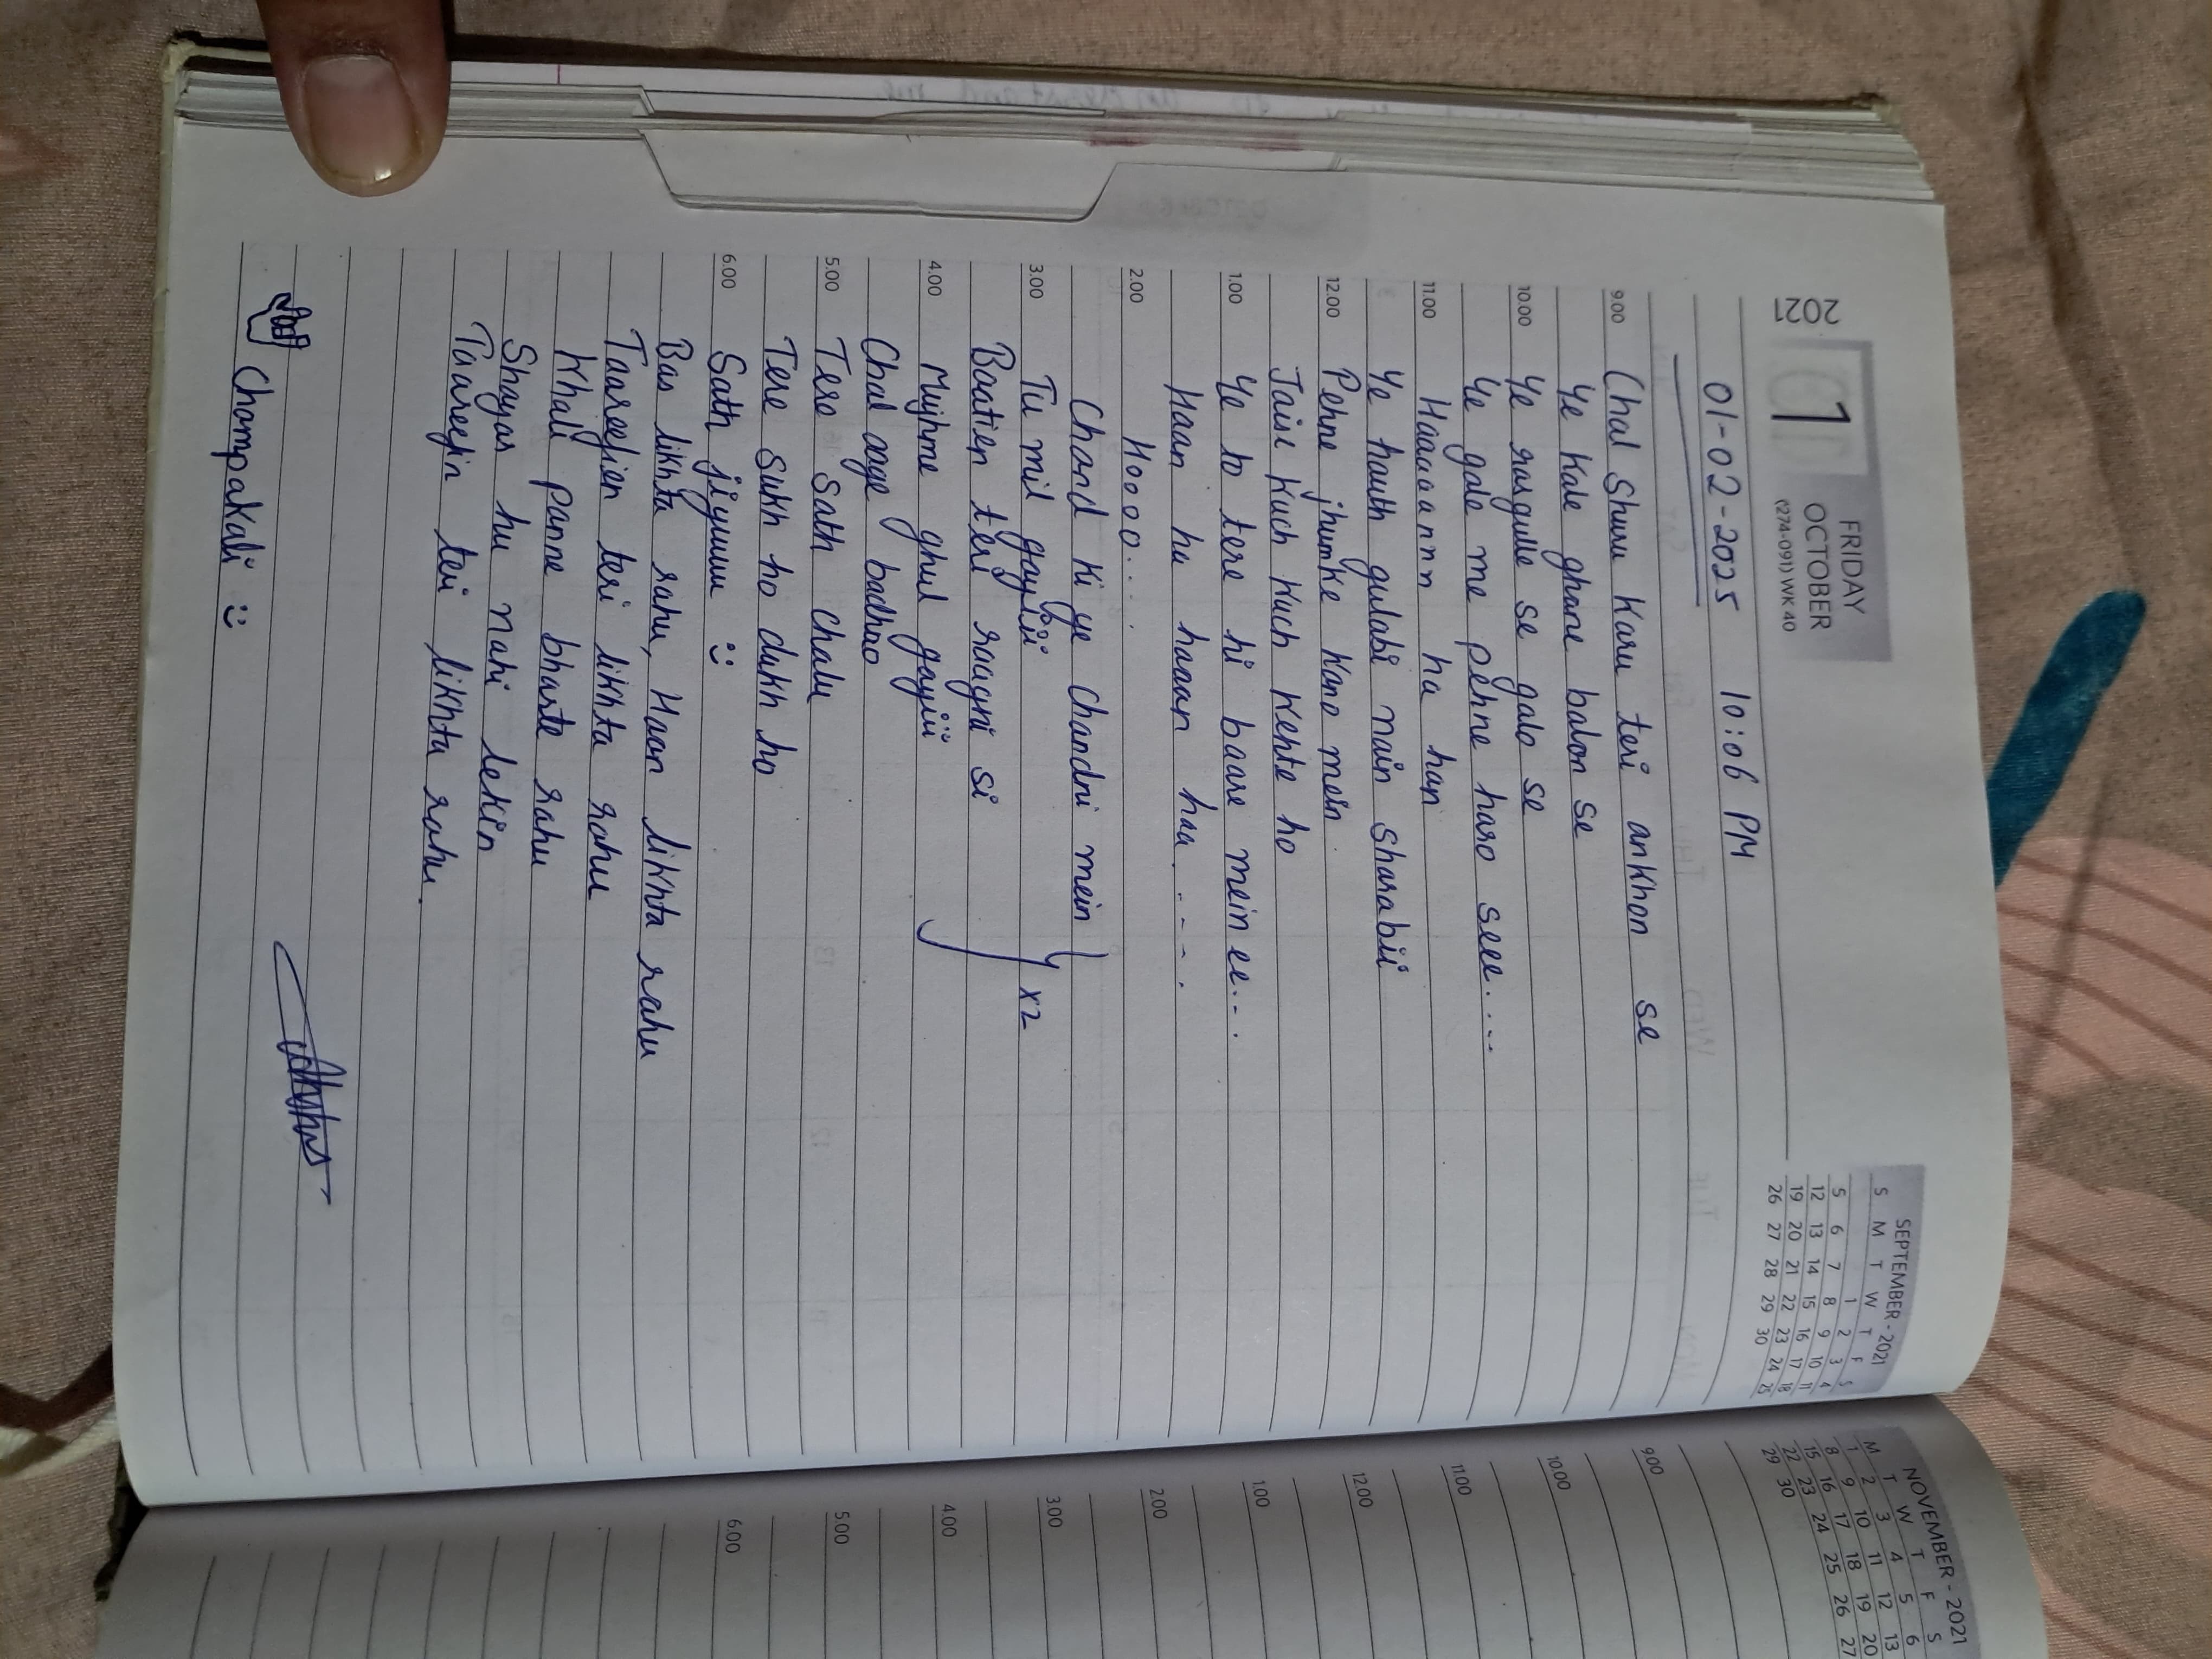 2021
1
FRIDAY
OCTOBER
(274-091) WK 40
SEPTEMBER - 2021
S M T W T F S
1 2 3 4
5 6 7 8 9 10 11
12 13 14 15 16 17 18
19 20 21 22 23 24 25
26 27 28 29 30
01-02-2025 10:06 PM
9.00 Chal Shuru Karu teri ankhon se
Ye Kale ghane balon se
10.00 Ye rasgulle se galo se
Ye gale me pehne haro seee....
11.00 Haaaaannn ha han
Ye hauth gulabi nain sharabii
12.00 Pehne jhumke Kano mein
Jaise Kuch Kuch Kehte ho
1.00 Ye to tere hi baare mein ee...
Haan hu haaan haa....
2.00 Hooo....
Chand Ki ye Chandni mein
3.00 Tu mil gayiii x2
Baatien teri raagni si
4.00 Mujhme ghul gayiii
Chal aage badhao
5.00 Tere Sath Chalu
Tere Sukh ho dukh ho
6.00 Sath jiyuuu :)
Bas likhta rahu, Haan likhta rahu
Taareefien teri likhta rahu
Khali panne bharte rahu
Shayar hu nahi lekin
Taareefin teri likhta rahu.
Champakali :)
NOVEMBER - 2021
M T W T F S
1 2 3 4 5 6
8 9 10 11 12 13
15 16 17 18 19 20
22 23 24 25 26 27
29 30
9.00
10.00
11.00
12.00
1.00
2.00
3.00
4.00
5.00
6.00